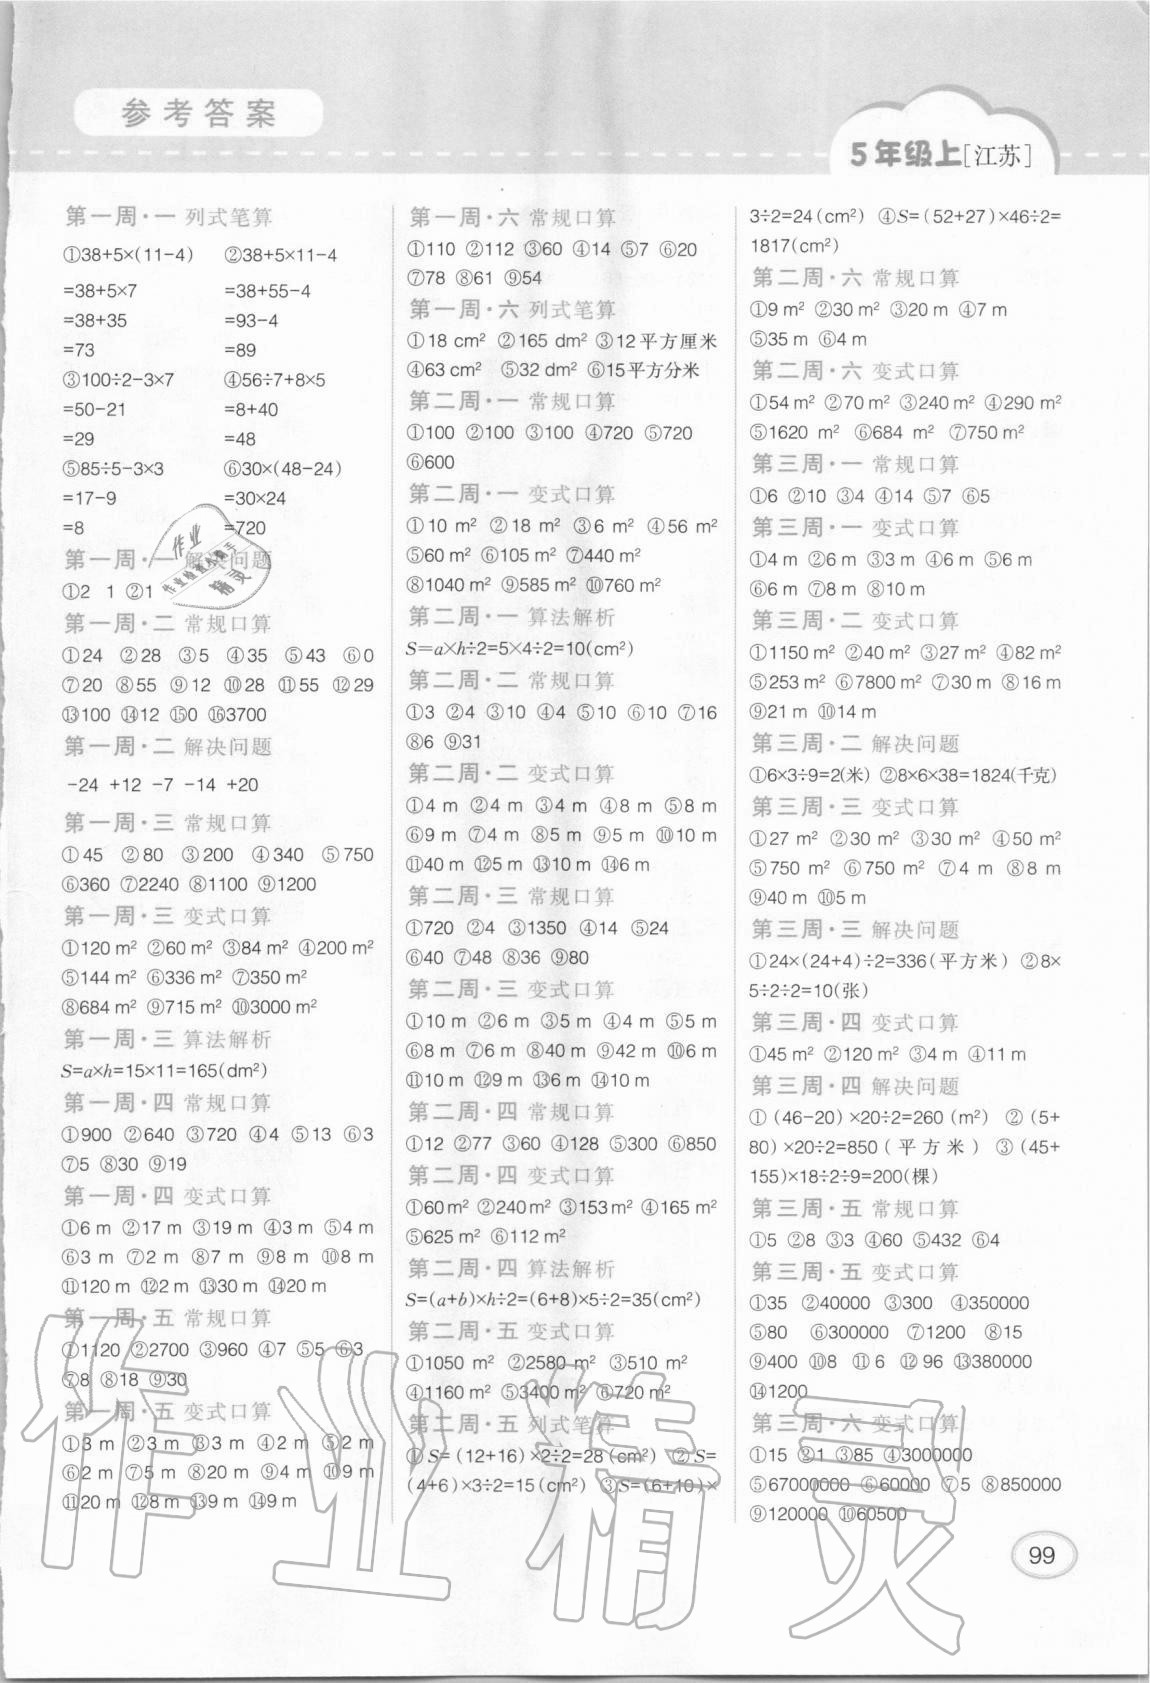 参考答案
5年级上[江苏]
第一周·一 列式笔算
①38+5×(11-4) ②38+5×11-4
=38+5×7 =38+55-4
=38+35 =93-4
=73 =89
③100÷2-3×7 ④56÷7+8×5
=50-21 =8+40
=29 =48
⑤85÷5-3×3 ⑥30×(48-24)
=17-9 =30×24
=8 =720
第一周·一 解决问题
①2 1 ②1
第一周·二 常规口算
①24 ②28 ③5 ④35 ⑤43 ⑥0
⑦20 ⑧55 ⑨12 ⑩28 ⑪55 ⑫29
⑬100 ⑭12 ⑮0 ⑯3700
第一周·二 解决问题
-24 +12 -7 -14 +20
第一周·三 常规口算
①45 ②80 ③200 ④340 ⑤750
⑥360 ⑦2240 ⑧1100 ⑨1200
第一周·三 变式口算
①120 m² ②60 m² ③84 m² ④200 m²
⑤144 m² ⑥336 m² ⑦350 m²
⑧684 m² ⑨715 m² ⑩3000 m²
第一周·三 算法解析
S=a×h=15×11=165(dm²)
第一周·四 常规口算
①900 ②640 ③720 ④4 ⑤13 ⑥3
⑦5 ⑧30 ⑨19
第一周·四 变式口算
①6 m ②17 m ③19 m ④3 m ⑤4 m
⑥3 m ⑦2 m ⑧7 m ⑨8 m ⑩8 m
⑪120 m ⑫2 m ⑬30 m ⑭20 m
第一周·五 常规口算
①1120 ②2700 ③960 ④7 ⑤5 ⑥3
⑦8 ⑧18 ⑨30
第一周·五 变式口算
①3 m ②3 m ③3 m ④2 m ⑤2 m
⑥2 m ⑦5 m ⑧20 m ⑨4 m ⑩9 m
⑪20 m ⑫8 m ⑬9 m ⑭9 m
第一周·六 常规口算
①110 ②112 ③60 ④14 ⑤7 ⑥20
⑦78 ⑧61 ⑨54
第一周·六 列式笔算
①18 cm² ②165 dm² ③12平方厘米
④63 cm² ⑤32 dm² ⑥15平方分米
第二周·一 常规口算
①100 ②100 ③100 ④720 ⑤720
⑥600
第二周·一 变式口算
①10 m² ②18 m² ③6 m² ④56 m²
⑤60 m² ⑥105 m² ⑦440 m²
⑧1040 m² ⑨585 m² ⑩760 m²
第二周·一 算法解析
S=a×h÷2=5×4÷2=10(cm²)
第二周·二 常规口算
①3 ②4 ③10 ④4 ⑤10 ⑥10 ⑦16
⑧6 ⑨31
第二周·二 变式口算
①4 m ②4 m ③4 m ④8 m ⑤8 m
⑥9 m ⑦4 m ⑧5 m ⑨5 m ⑩10 m
⑪40 m ⑫5 m ⑬10 m ⑭6 m
第二周·三 常规口算
①720 ②4 ③1350 ④14 ⑤24
⑥40 ⑦48 ⑧36 ⑨80
第二周·三 变式口算
①10 m ②6 m ③5 m ④4 m ⑤5 m
⑥8 m ⑦6 m ⑧40 m ⑨42 m ⑩6 m
⑪10 m ⑫9 m ⑬6 m ⑭10 m
第二周·四 常规口算
①12 ②77 ③60 ④128 ⑤300 ⑥850
第二周·四 变式口算
①60 m² ②240 m² ③153 m² ④165 m²
⑤625 m² ⑥112 m²
第二周·四 算法解析
S=(a+b)×h÷2=(6+8)×5÷2=35(cm²)
第二周·五 变式口算
①1050 m² ②2580 m² ③510 m²
④1160 m² ⑤3400 m² ⑥720 m²
第二周·五 列式笔算
①S=(12+16)×2÷2=28(cm²) ②S=
(4+6)×3÷2=15(cm²) ③S=(6+10)×
3÷2=24(cm²) ④S=(52+27)×46÷2=
1817(cm²)
第二周·六 常规口算
①9 m² ②30 m² ③20 m ④7 m
⑤35 m ⑥4 m
第二周·六 变式口算
①54 m² ②70 m² ③240 m² ④290 m²
⑤1620 m² ⑥684 m² ⑦750 m²
第三周·一 常规口算
①6 ②10 ③4 ④14 ⑤7 ⑥5
第三周·一 变式口算
①4 m ②6 m ③3 m ④6 m ⑤6 m
⑥6 m ⑦8 m ⑧10 m
第三周·二 变式口算
①1150 m² ②40 m² ③27 m² ④82 m²
⑤253 m² ⑥7800 m² ⑦30 m ⑧16 m
⑨21 m ⑩14 m
第三周·二 解决问题
①6×3÷9=2(米) ②8×6×38=1824(千克)
第三周·三 变式口算
①27 m² ②30 m² ③30 m² ④50 m²
⑤750 m² ⑥750 m² ⑦4 m ⑧8 m
⑨40 m ⑩5 m
第三周·三 解决问题
①24×(24+4)÷2=336(平方米) ②8×
5÷2÷2=10(张)
第三周·四 变式口算
①45 m² ②120 m² ③4 m ④11 m
第三周·四 解决问题
①(46-20)×20÷2=260(m²) ②(5+
80)×20÷2=850(平方米) ③(45+
155)×18÷2÷9=200(棵)
第三周·五 常规口算
①5 ②8 ③3 ④60 ⑤432 ⑥4
第三周·五 变式口算
①35 ②40000 ③300 ④350000
⑤80 ⑥300000 ⑦1200 ⑧15
⑨400 ⑩8 ⑪6 ⑫96 ⑬380000
⑭1200
第三周·六 变式口算
①15 ②1 ③85 ④3000000
⑤67000000 ⑥60000 ⑦5 ⑧850000
⑨120000 ⑩60500
99
作业精灵